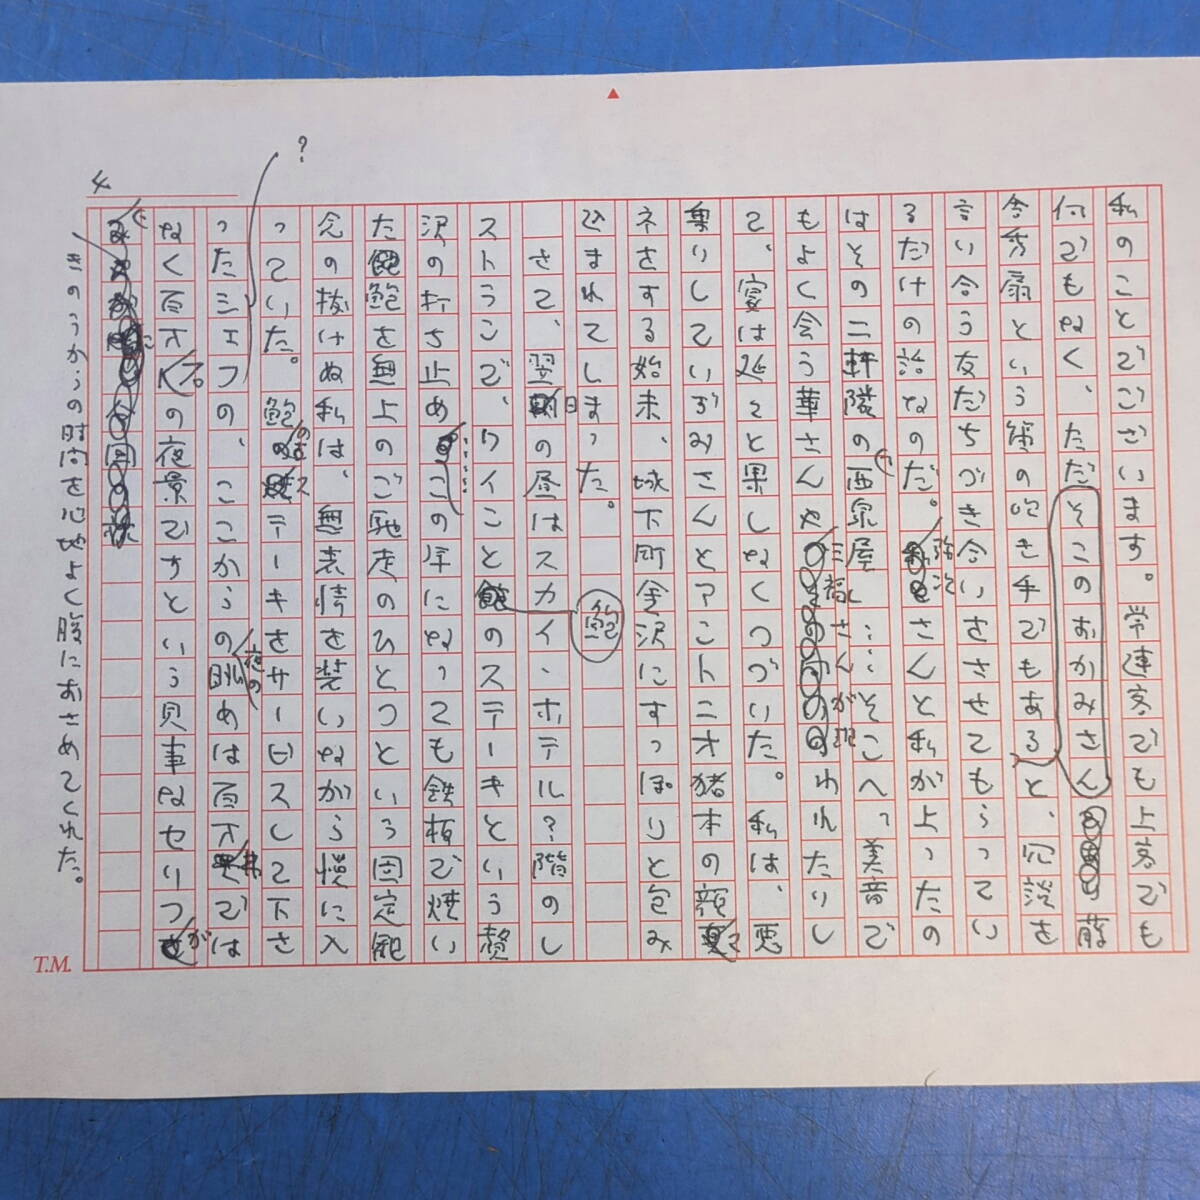 4
?
私のことでございます。常連客でも上客でも
何でもなく、ただそこのおかみさん
言い合う友だちづき合いをさせてもらってい
るだけの話なのだ。さんと私が上ったの
はその二軒隣の西泉屋……そこへ、美音で
もよく会う華さんや三福さんが現われたりし
て、宴は延々と果しなくつづいた。私は、悪
乗りしていずみさんとアントニオ猪本の顔
ネをする始末、城下町金沢にすっぽりと包み
込まれてしまった。
さて、翌日の昼はスカイ・ホテル?階のレ
ストランで、ワインと鮑のステーキという贅
沢の行き止め……この年になっても鉄板で焼い
た鮑を無上のご馳走のひとつという固定観
念の抜けぬ私は、無表情を装いながら慢に入
っていた。鮑のステーキをサービスして下さ
ったシェフの、ここからの夜の眺めは百万弗では
なく百万Kプの夜景ですという見事なセリフが
きのうからの時間を心地よく腹におさめてくれた。
鮑
T.M.